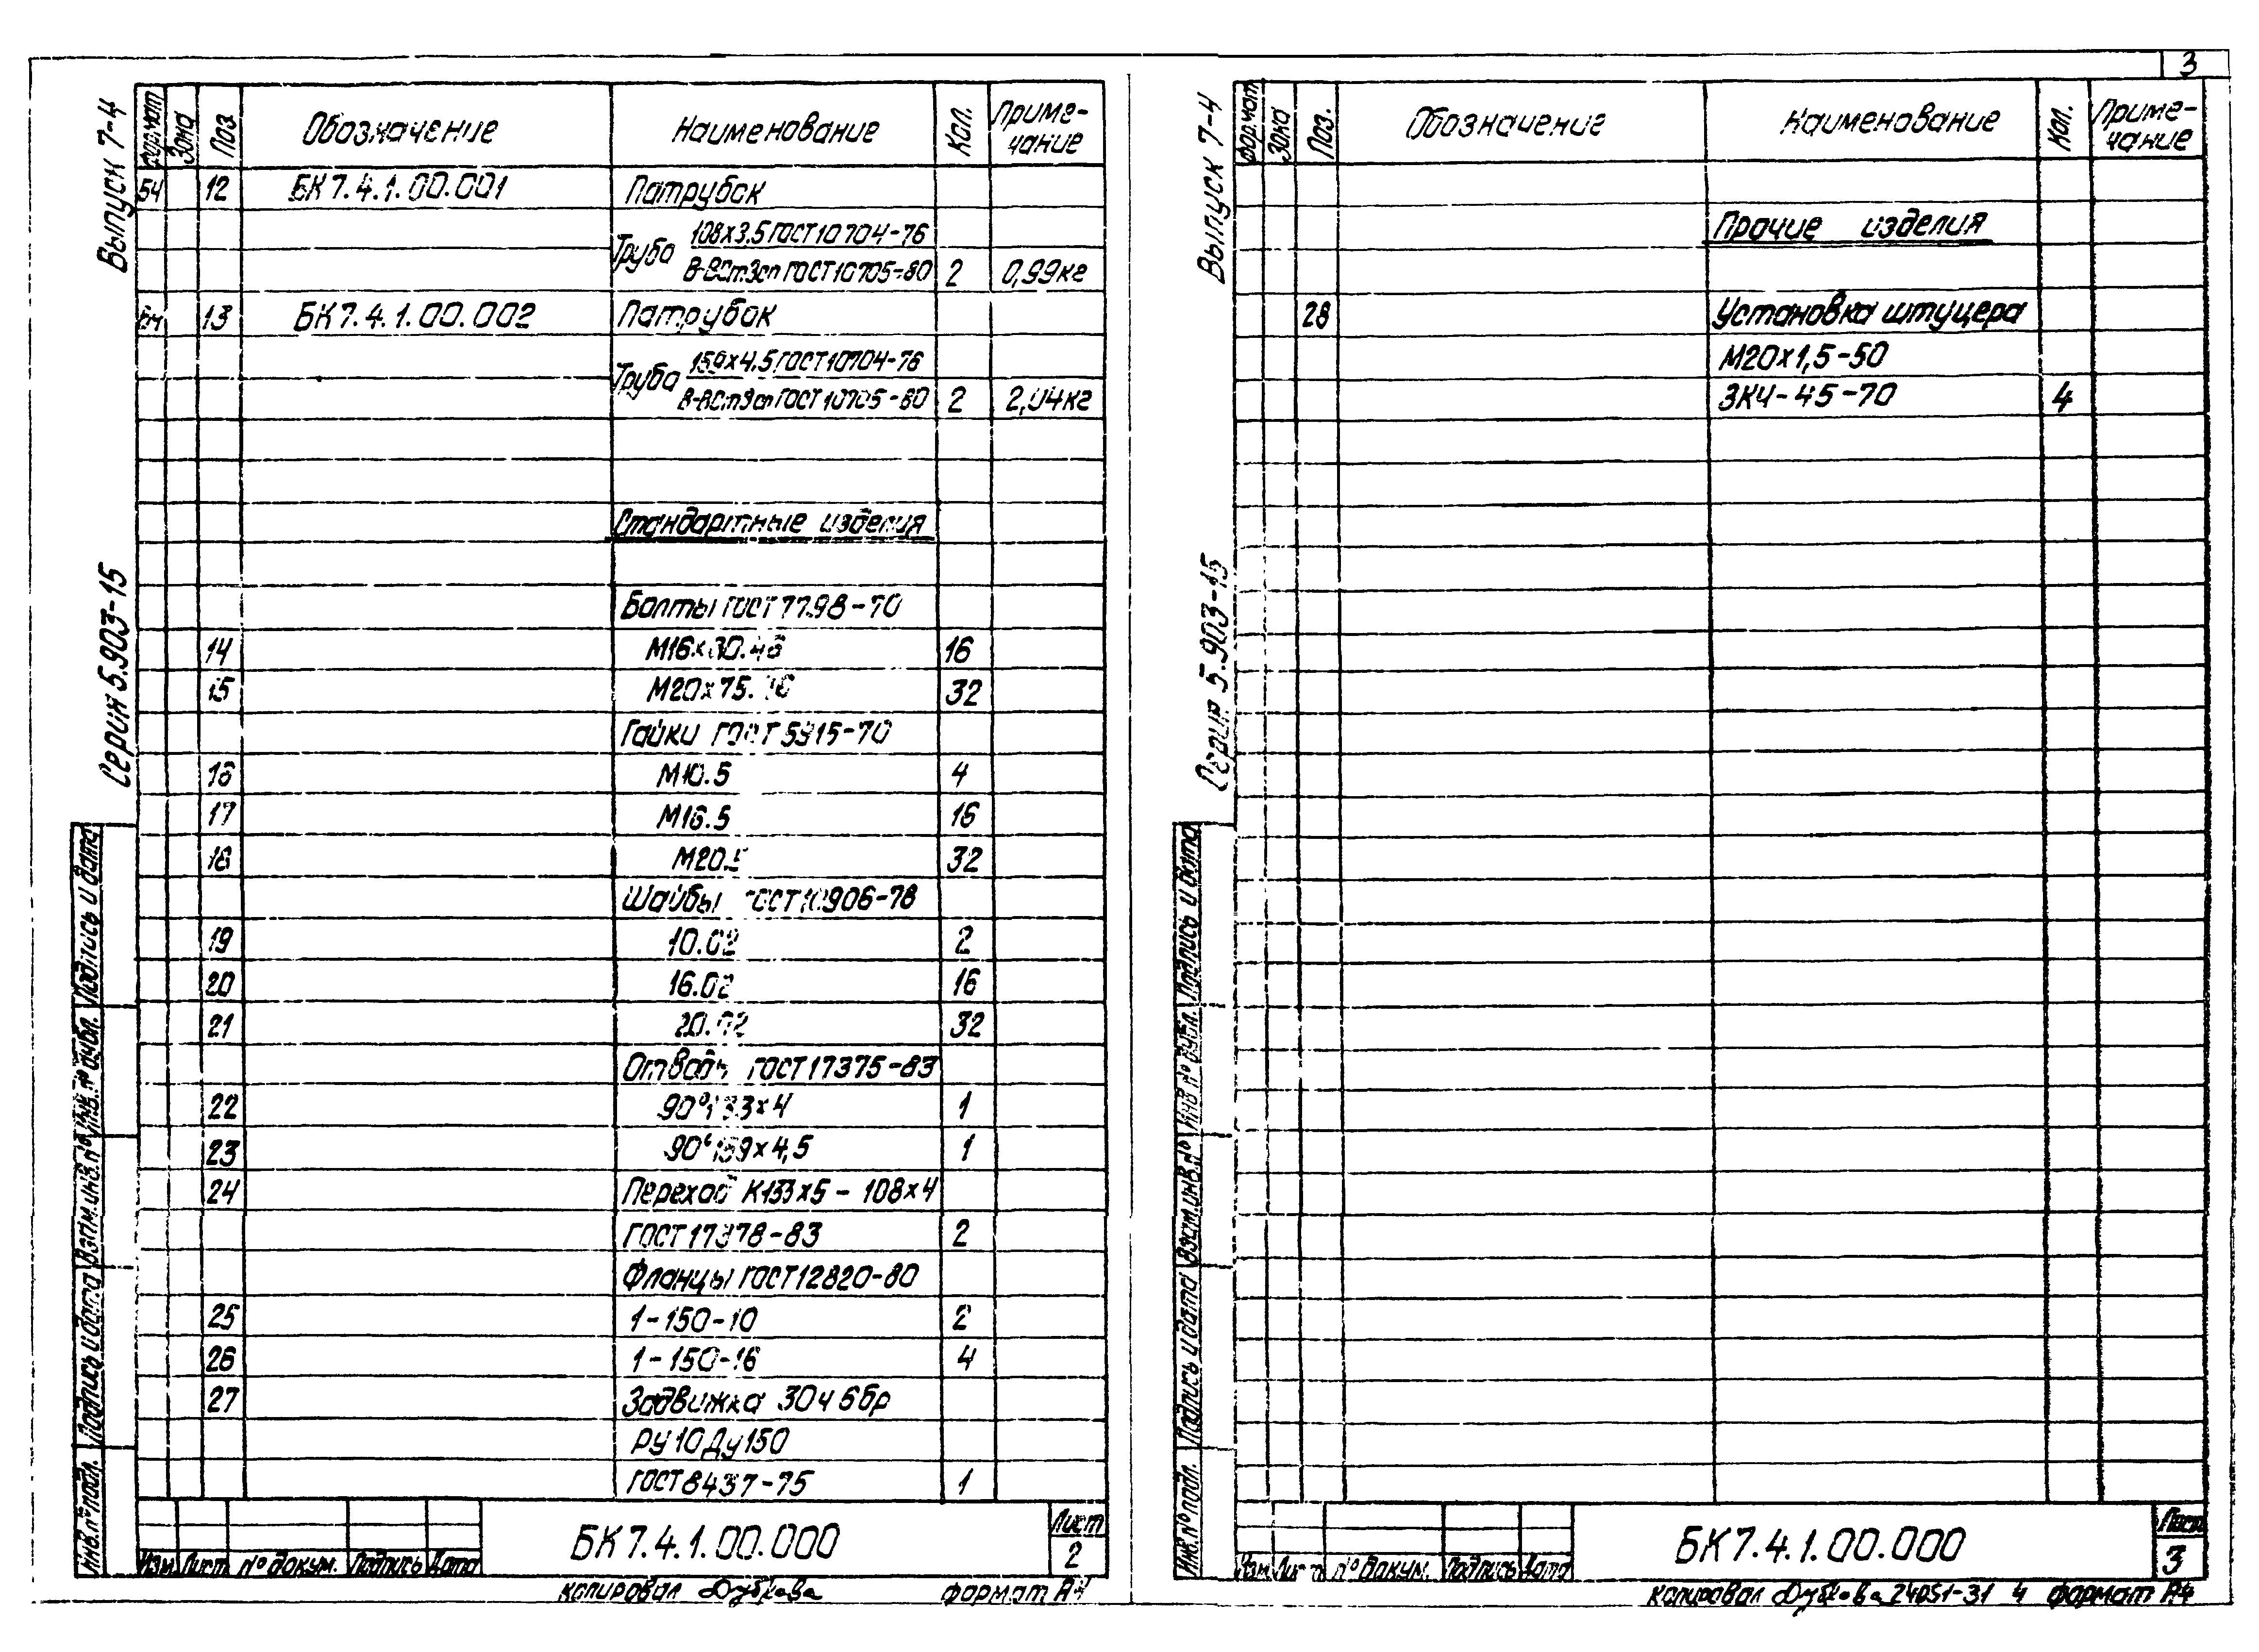 3
Выпуск 7-4
Серия 5.903-15
Формат Зона Поз. Обозначение Наименование Кол. Приме-
чание
БЧ 12 БК 7.4.1.00.001 Патрубок
Труба 108х3,5 ГОСТ 10704-76
В-ВСт3сп ГОСТ 10705-80 2 0,99кг
13 БК 7.4.1.00.002 Патрубок
Труба 159х4,5 ГОСТ 10704-76
В-ВСт3сп ГОСТ 10705-80 2 2,04кг
Стандартные изделия
Болты ГОСТ 7798-70
14 М16х80.46 16
15 М20х75. 32
Гайки ГОСТ 5915-70
16 М10.5 4
17 М16.5 16
18 М20.5 32
Шайбы ГОСТ 10906-78
19 10.02 2
20 16.02 16
21 20.02 32
Отводы ГОСТ 17375-83
22 90°133х4 1
23 90°159х4,5 1
24 Переход К133х5-108х4
ГОСТ 17378-83 2
Фланцы ГОСТ 12820-80
25 1-150-10 2
26 1-150-16 4
27 Задвижка 30ч6бр
Ру10 Ду150
ГОСТ 8437-75 1
Инв.№подл. Подпись и дата Взам.инв.№ Инв.№дубл. Подпись и дата
Изм Лист №докум. Подпись Дата
БК 7.4.1.00.000
Лист
2
копировал Дубкова формат А4
Выпуск 7-4
Серия 5.903-15
Формат Зона Поз. Обозначение Наименование Кол. Приме-
чание
Прочие изделия
28 Установка штуцера
М20х1,5-50
ЗКЧ-45-70 4
Инв.№подл. Подпись и дата Взам.инв.№ Инв.№дубл. Подпись и дата
Изм Лист №докум. Подпись Дата
БК 7.4.1.00.000
Лист
3
копировал Дубкова 24051-31 4 формат А4